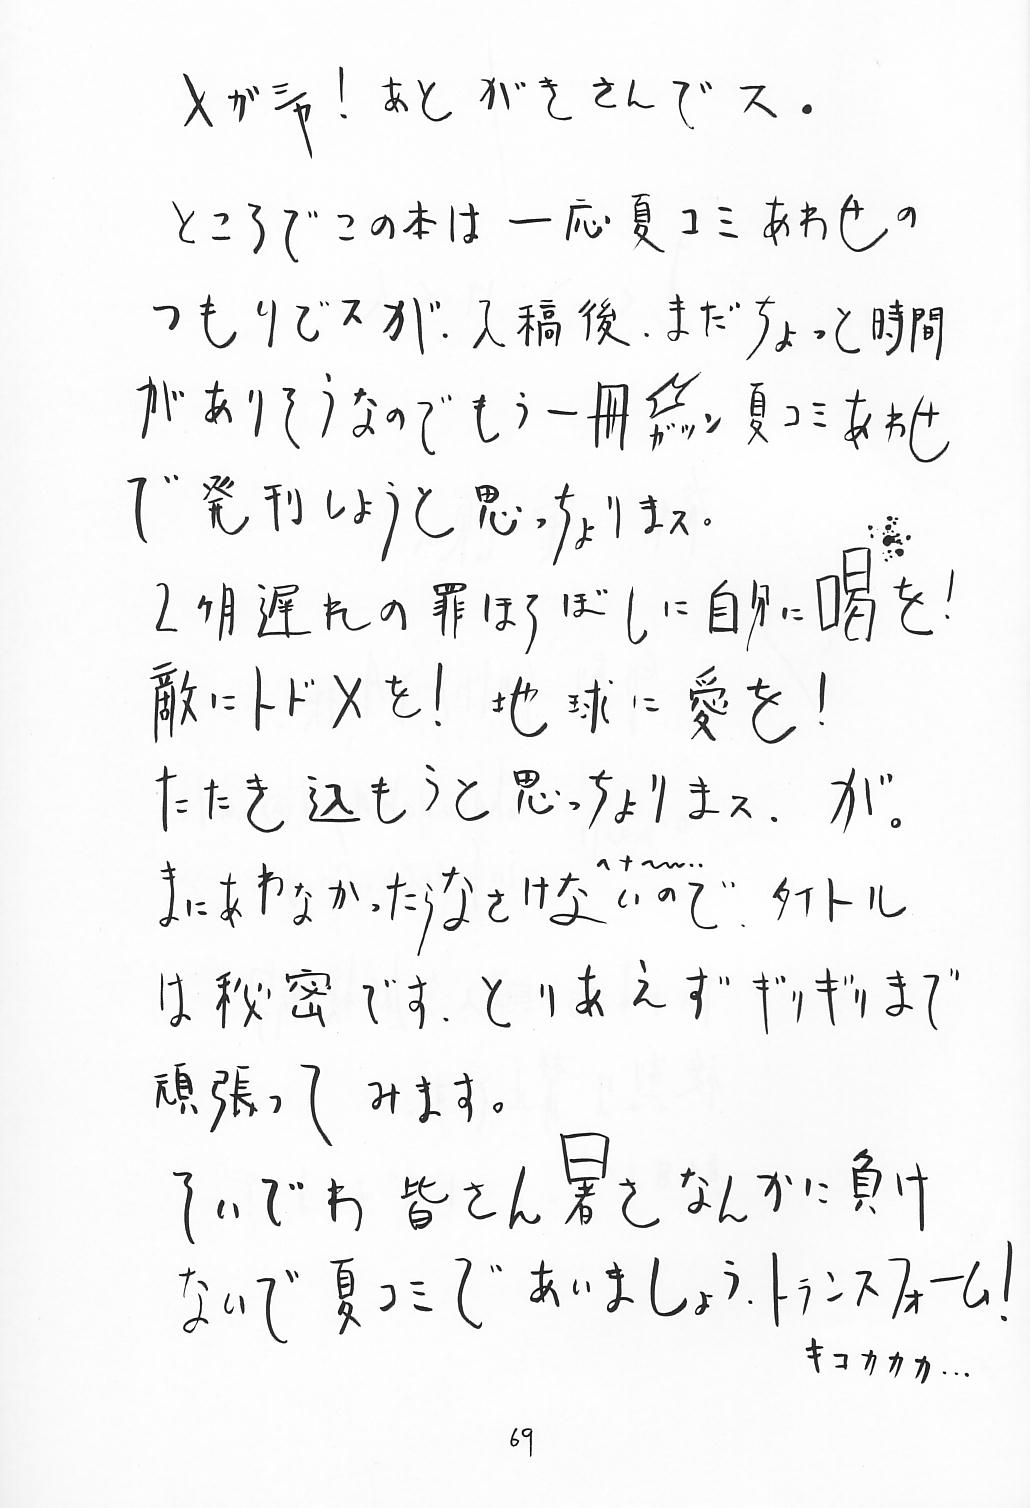 メガシャ!あとがきさんでス.
ところでこの本は一応夏コミあわせの
つもりでスが、入稿後、まだちょっと時間
がありそうなのでもう一冊ガツン夏コミあわせ
で発刊しようと思っちょりまス。
2ヶ月遅れの罪ほろぼしに自分に喝を!
敵にトドメを!地球に愛を!
たたき込もうと思っちょりまス、が。
まにあわなかったらなさけないので、タイトル
は秘密です、とりあえずギリギリまで
頑張ってみます。
そいでわ皆さん暑さなんかに負け
ないで夏コミであいましょう、トランスフォーム!
キコカカカ...
69